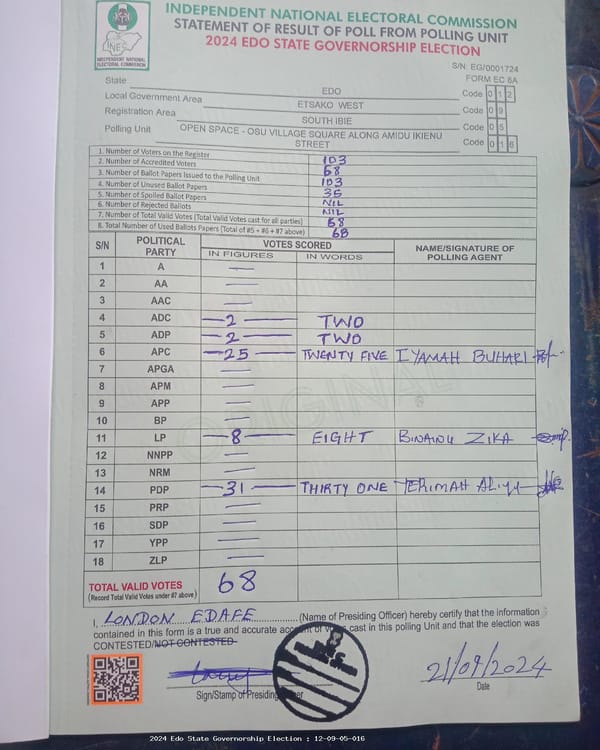 INDEPENDENT NATIONAL ELECTORAL COMMISSION
STATEMENT OF RESULT OF POLL FROM POLLING UNIT
2024 EDO STATE GOVERNORSHIP ELECTION
INEC
INDEPENDENT NATIONAL ELECTORAL COMMISSION
S/N: EG/0001724
FORM EC 8A
State EDO Code 0 1 2
Local Government Area ETSAKO WEST Code 0 9
Registration Area SOUTH IBIE Code 0 5
Polling Unit OPEN SPACE - OSU VILLAGE SQUARE ALONG AMIDU IKIENU STREET Code 0 1 6
1. Number of Voters on the Register 103
2. Number of Accredited Voters 68
3. Number of Ballot Papers Issued to the Polling Unit 103
4. Number of Unused Ballot Papers 35
5. Number of Spoiled Ballot Papers NIL
6. Number of Rejected Ballots NIL
7. Number of Total Valid Votes (Total Valid Votes cast for all parties) 68
8. Total Number of Used Ballots Papers (Total of #5 + #6 + #7 above) 68
S/N POLITICAL PARTY VOTES SCORED NAME/SIGNATURE OF POLLING AGENT
IN FIGURES IN WORDS
1 A
2 AA
3 AAC
4 ADC 2 TWO
5 ADP 2 TWO
6 APC 25 TWENTY FIVE IYAMAH BUHARI
7 APGA
8 APM
9 APP
10 BP
11 LP 8 EIGHT ZIKA
12 NNPP
13 NRM
14 PDP 31 THIRTY ONE ALIYU
15 PRP
16 SDP
17 YPP
18 ZLP
ORIGINAL
TOTAL VALID VOTES 68
(Record Total Valid Votes under #7 above)
I, LONDON EDAFE (Name of Presiding Officer) hereby certify that the information
contained in this form is a true and accurate account of votes cast in this polling Unit and that the election was
CONTESTED/NOT CONTESTED
21/09/2024
Sign/Stamp of Presiding Officer Date
2024 Edo State Governorship Election : 12-09-05-016